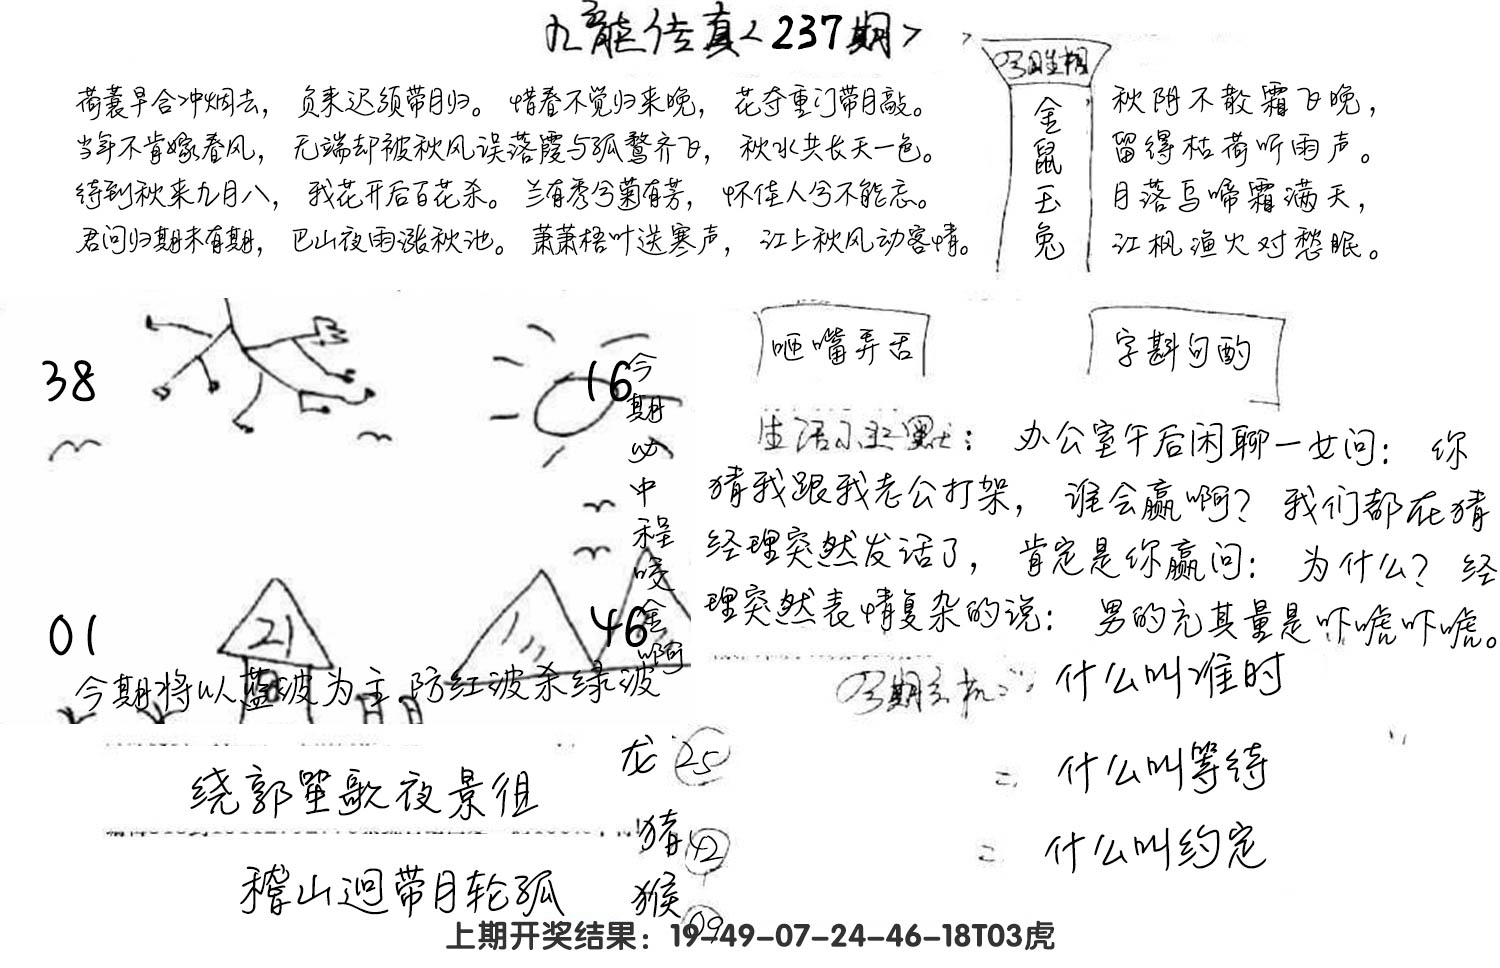 九龙传真<237期>
荷蓑早合冲烟去，负耒迟须带月归。惜春不觉归来晚，花夺重门带月敲。
当年不肯嫁春风，无端却被秋风误落霞与孤鹜齐飞，秋水共长天一色。
待到秋来九月八，我花开后百花杀。兰有秀兮菊有芳，怀佳人兮不能忘。
君问归期未有期，巴山夜雨涨秋池。萧萧梧叶送寒声，江上秋风动客情。
金鼠玉兔
秋阴不散霜飞晚，
留得枯荷听雨声。
月落乌啼霜满天，
江枫渔火对愁眠。
38
16
01
21
46
今期必中程咬金啊
今期将以蓝波为主 防红波杀绿波
咂嘴弄舌
字斟句酌
生活小幽默：办公室午后闲聊一女问：你
猜我跟我老公打架，谁会赢啊？我们都在猜
经理突然发话了，肯定是你赢问：为什么？经
理突然表情复杂的说：男的充其量是吓唬吓唬。
什么叫准时
= 什么叫等待
= 什么叫约定
绕郭笙歌夜景徂
稽山迥带月轮孤
龙 25
猪 42
猴 09
上期开奖结果：19-49-07-24-46-18T03虎